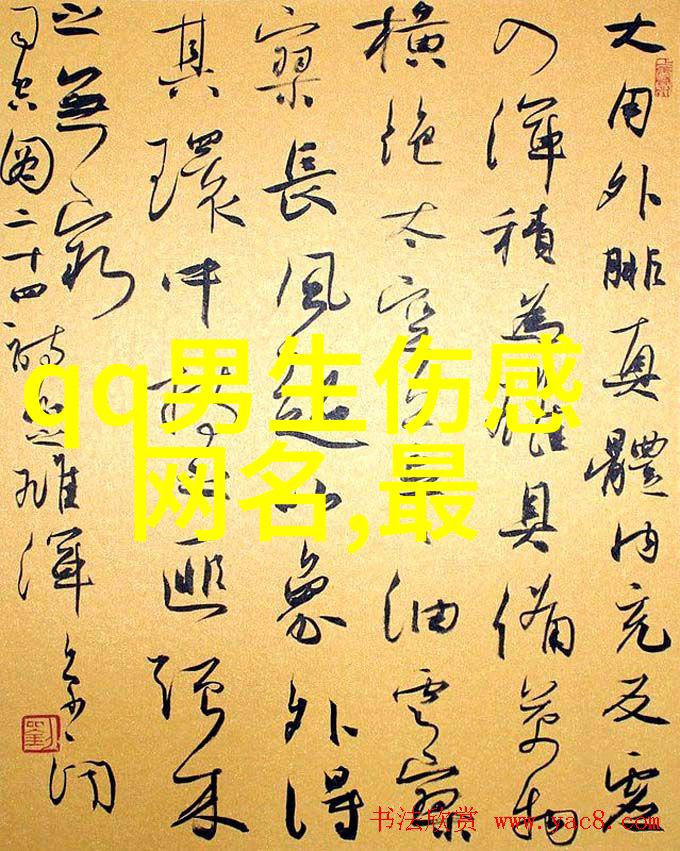 大用外腓真體內充反虛
入渾積為雄具備萬物
橫絕太空荒油雲寥
寥長風超以象外得
其環中持之匪強來
之無窮
司空圖二十四詩品雄渾
qq男生伤感
网名,最
书法欣赏 www.yac8.com